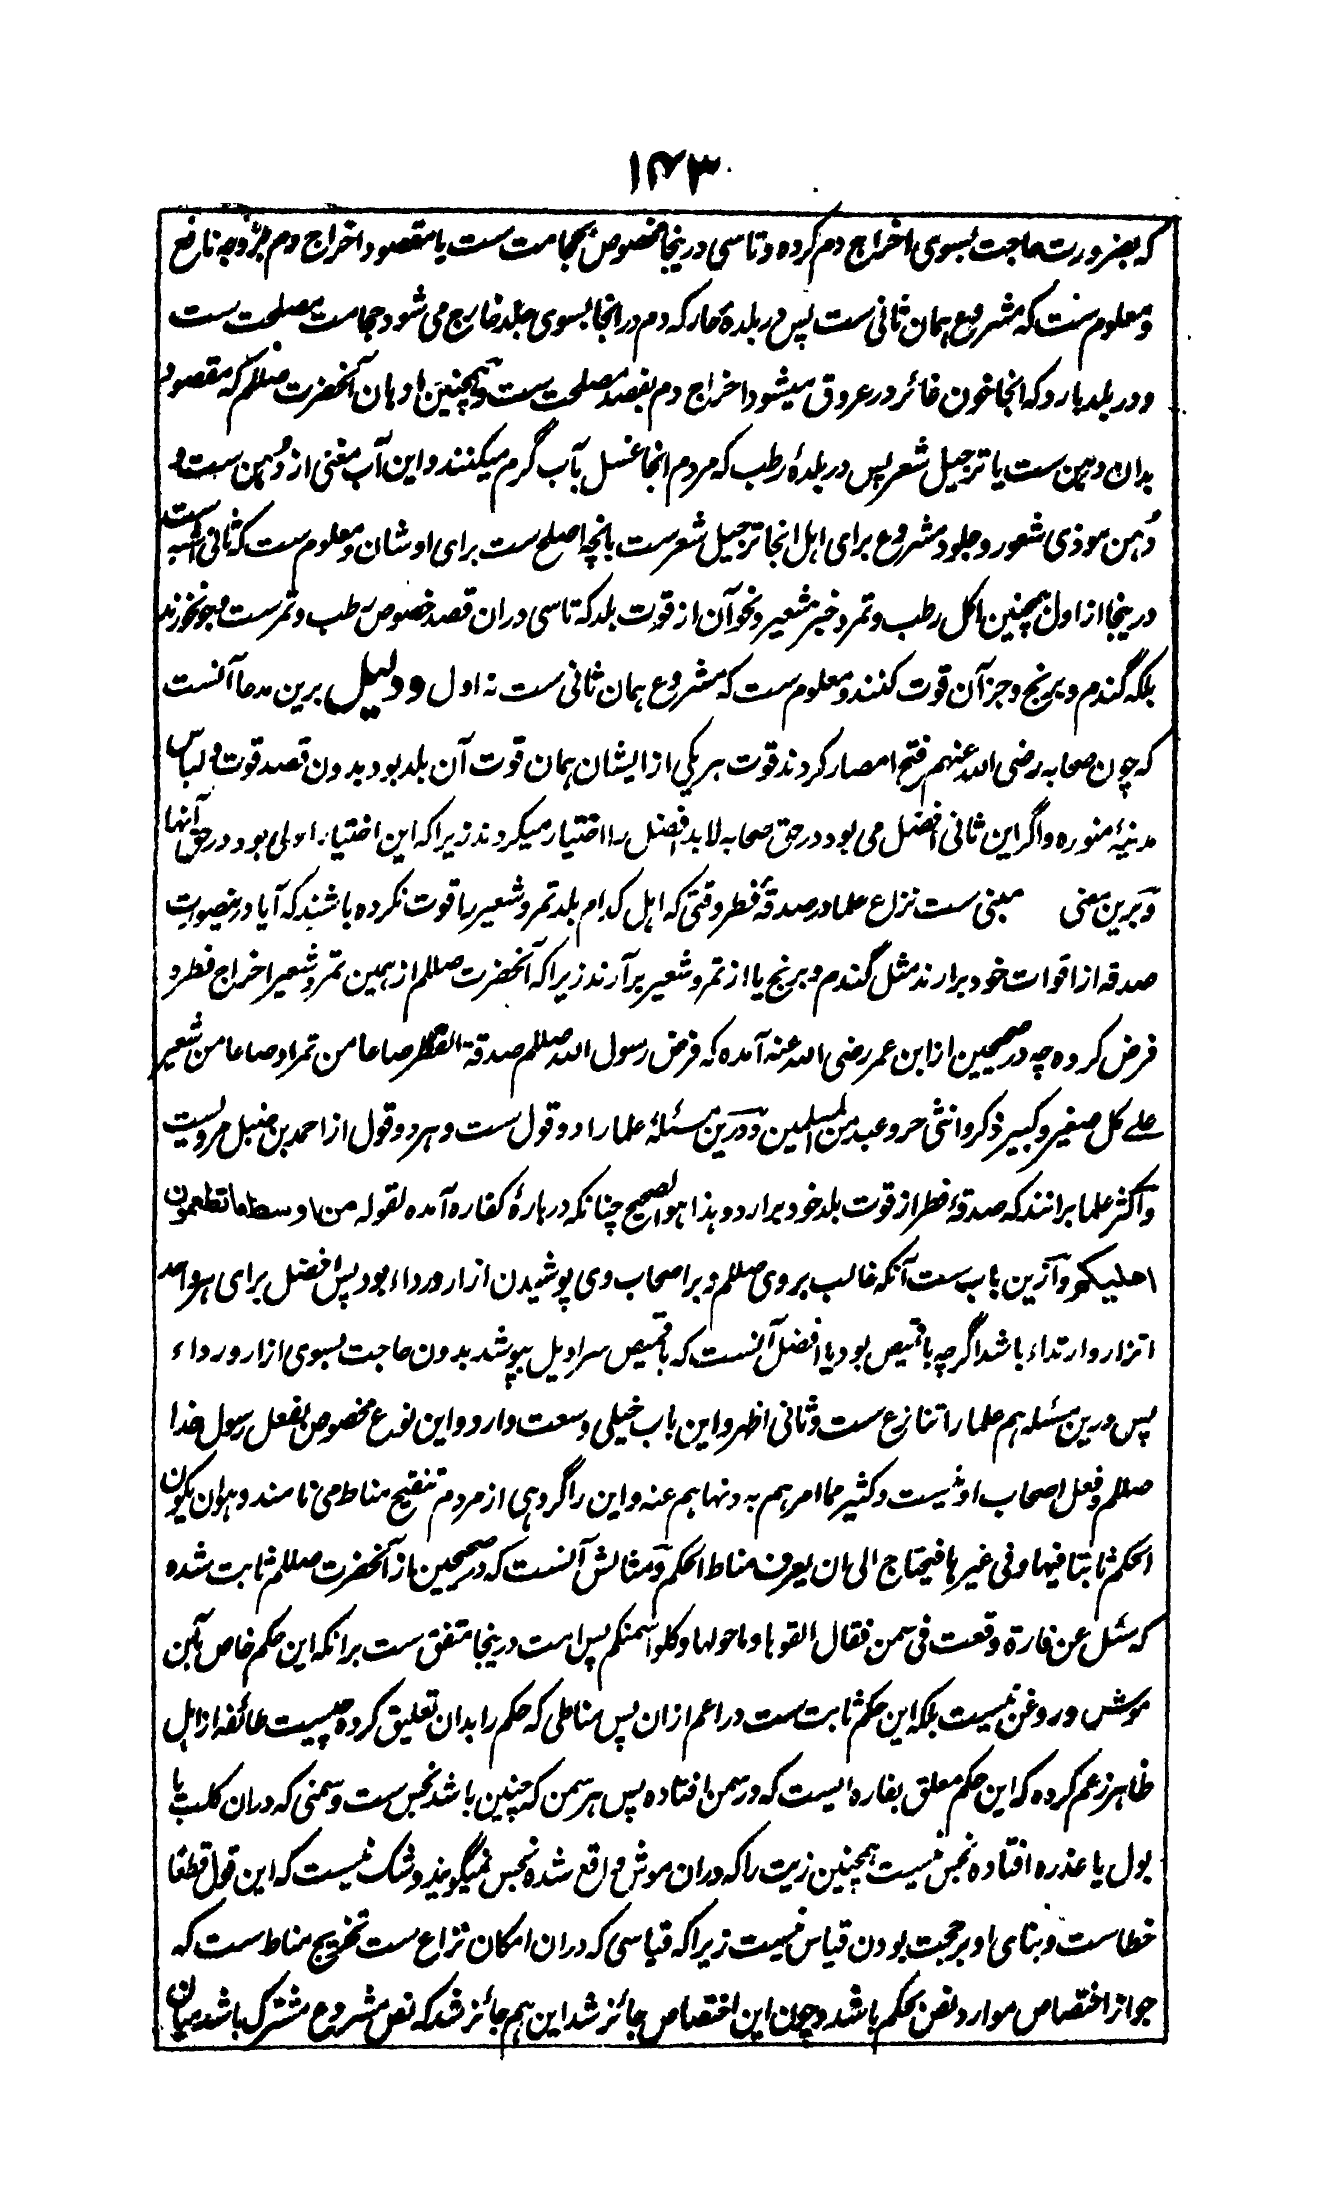 ۱۴۳
که بضرورت حاجت بسوی اخراج دم کرده و تاسی درینجا مخصوص بحجامت ست یا مقصود اخراج دم بر وجه نافع
و معلوم ست که مشروع همان ثانی ست پس در بلدهٔ حار که دم در انجا بسوی جلد خارج می شود حجامت مصلحت ست
و در بلد بارد که انجا خون غائر در عروق میشود اخراج دم بفصد مصلحت ست و همچنین ادهان آنحضرت صللم که مقصود
بدان دهن ست یا ترجیل شعر پس در بلدهٔ رطب که مردم انجا غسل بآب گرم میکنند و این آب مغنی از دُهن ست و
دُهن موذی شعور و جلود مشروع برای اهل انجا ترجیل شعر ست بانچه اصلح ست برای اوشان و معلوم ست که ثانی اشبه ست
درینجا از اول همچنین اکل رطب و تمر و خبز شعیر و نحو آن از قوت بلد که تاسی دران قصد خصوص رطب و تمر ست و جو نخورند
بلکه گندم و برنج و جز آن قوت کنند و معلوم ست که مشروع همان ثانی ست نه اول و دلیل برین مدعا آنست
که چون صحابه رضی الله عنهم فتح امصار کردند قوت هر یکی از ایشان همان قوت آن بلد بود بدون قصد قوت و لباس
مدینهٔ منوره و اگر این ثانی افضل می بود در حق صحابه لابد افضل را اختیار میکردند زیرا که این اختیار اولی بود در حق آنها
و برین معنی مبنی ست نزاع علما در صدقهٔ فطر وقتی که اهل کدام بلد تمر و شعیر را قوت نکرده باشند که آیا درینصورت
صدقه از اقوات خود برارند مثل گندم و برنج یا از تمر و شعیر برآرند زیرا که آنحضرت صللم از همین تمر و شعیر اخراج فطر و
فرض کرده چه در صحیحین از ابن عمر رضی الله عنه آمده که فرض رسول الله صللم صدقة الفطر صاعا من تمر او صاعا من شعیر
علے کل صغیر و کبیر ذکر و انثی حر و عبد من المسلمین و درین مسئله علما را دو قول ست و هر دو قول از احمد بن حنبل مرویست
و اکثر علما برانند که صدقهٔ فطر از قوت بلد خود برارد و هذا هو الصحیح چنانکه دربارهٔ کفاره آمده لقوله من اوسط ما تطعمون
اهلیکم و ازین باب ست آنکه غالب بر وی صللم و بر اصحاب وی پوشیدن ازار و رداء بود پس افضل برای هر واحد
اتزار و ارتداء باشد اگرچه با قمیص بود یا افضل آنست که با قمیص سراویل بپوشد بدون حاجت بسوی ازار و رداء
پس درین مسئله هم علما را تنازع ست و ثانی اظهر و این باب خیلی وسعت دارد و این نوع مخصوص بفعل رسول خدا
صللم و فعل اصحاب او نیست و کثیر مما امرهم به و نهاهم عنه و این را گروهی از مردم تنقیح مناط می نامند و هو ان یکون
الحکم ثابتا فیها و فی غیرها فیحتاج الی ان یعرف مناط الحکم و مثالش آنست که در صحیحین از آنحضرت صللم ثابت شده
که سئل عن فارة وقعت فی سمن فقال القوها و ما حولها و کلوا سمنکم پس امت درینجا متفق ست برانکه این حکم خاص باین
موش و روغن نیست بلکه این حکم ثابت ست در اعم ازان پس مناطی که حکم را بدان تعلیق کرده چیست طائفه از اهل
ظاهر زعم کرده که این حکم معلق بفاره ایست که در سمن افتاده پس هر سمن که چنین باشد نجس ست و سمنی که دران کلب یا
بول یا عذره افتاده نجس نیست همچنین زیت را که دران موش واقع شده نجس نمیگویند و شک نیست که این قول قطعا
خطاست و بنای او بر حجت بودن قیاس نیست زیرا که قیاسی که دران امکان نزاع ست تخریج مناط ست که
جواز اختصاص موارد نص بحکم باشد و چون این اختصاص جائز شد این هم جائز شد که نص مشروع مشترک باشد میان